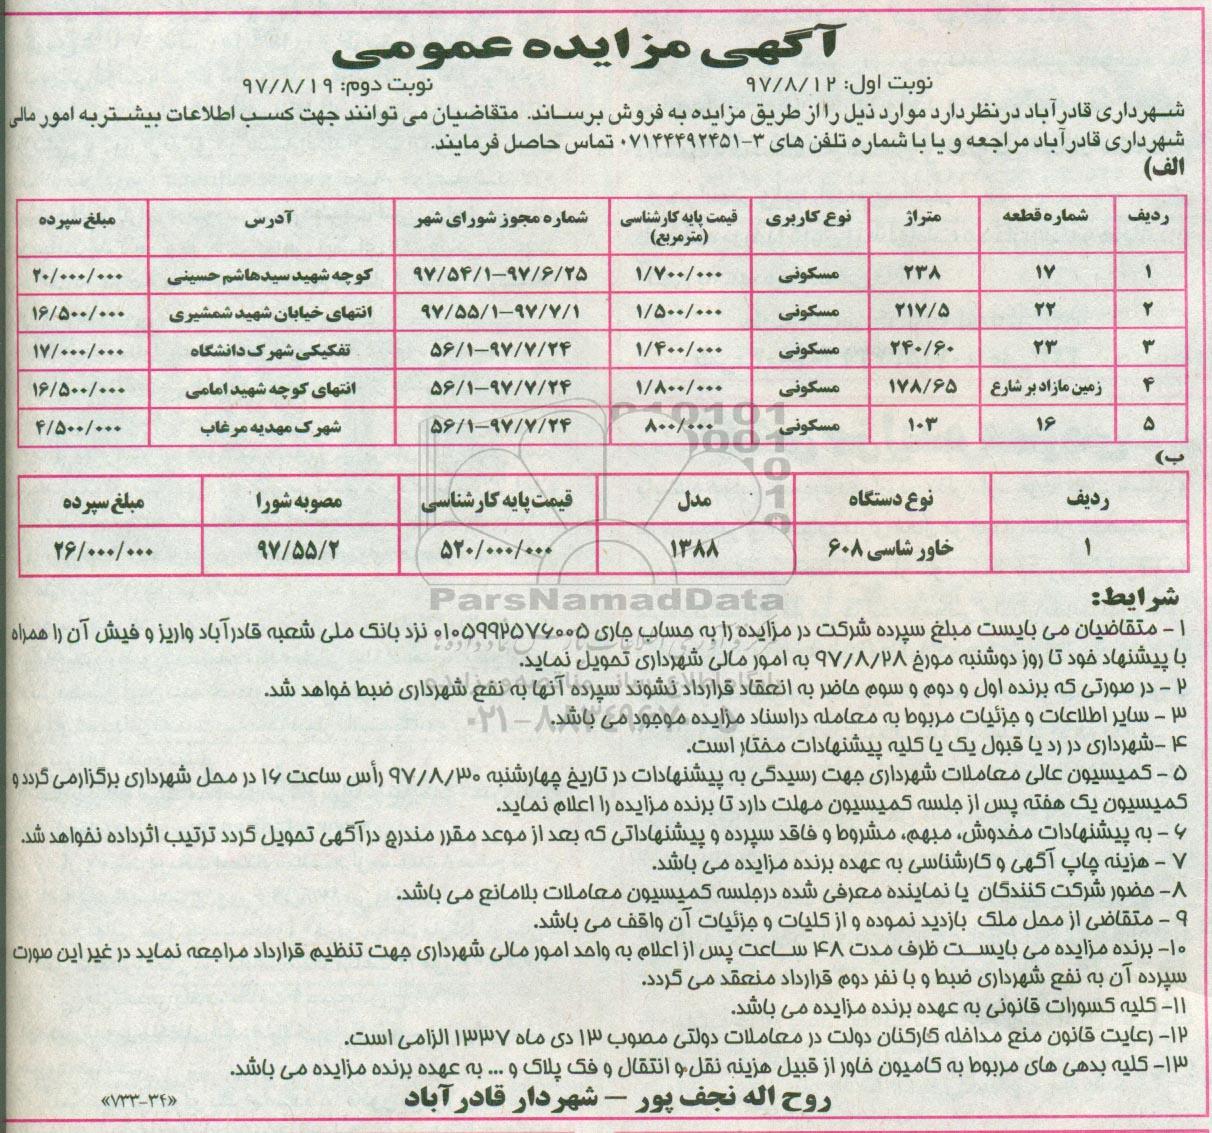 آگهی مزایده عمومی
نوبت اول: ۹۷/۸/۱۲ نوبت دوم: ۹۷/۸/۱۹
شهرداری قادرآباد در نظر دارد موارد ذیل را از طریق مزایده به فروش برساند. متقاضیان می توانند جهت کسب اطلاعات بیشتر به امور مالی
شهرداری قادرآباد مراجعه و یا با شماره تلفن های ۳-۰۷۱۴۴۴۹۲۴۵۱ تماس حاصل فرمایند.
الف)
ردیف شماره قطعه متراژ نوع کاربری قیمت پایه کارشناسی (مترمربع) شماره مجوز شورای شهر آدرس مبلغ سپرده
۱ ۱۷ ۲۳۸ مسکونی ۱/۷۰۰/۰۰۰ ۹۷/۵۴/۱-۹۷/۶/۲۵ کوچه شهید سیدهاشم حسینی ۲۰/۰۰۰/۰۰۰
۲ ۲۲ ۲۱۷/۵ مسکونی ۱/۵۰۰/۰۰۰ ۹۷/۵۵/۱-۹۷/۷/۱ انتهای خیابان شهید شمشیری ۱۶/۵۰۰/۰۰۰
۳ ۲۳ ۲۴۰/۶۰ مسکونی ۱/۴۰۰/۰۰۰ ۵۶/۱-۹۷/۷/۲۴ تفکیکی شهرک دانشگاه ۱۷/۰۰۰/۰۰۰
۴ زمین مازاد بر شارع ۱۷۸/۶۵ مسکونی ۱/۸۰۰/۰۰۰ ۵۶/۱-۹۷/۷/۲۴ انتهای کوچه شهید امامی ۱۶/۵۰۰/۰۰۰
۵ ۱۶ ۱۰۳ مسکونی ۸۰۰/۰۰۰ ۵۶/۱-۹۷/۷/۲۴ شهرک مهدیه مرغاب ۴/۵۰۰/۰۰۰
ب)
ردیف نوع دستگاه مدل قیمت پایه کارشناسی مصوبه شورا مبلغ سپرده
۱ خاور شاسی ۶۰۸ ۱۳۸۸ ۵۲۰/۰۰۰/۰۰۰ ۹۷/۵۵/۲ ۲۶/۰۰۰/۰۰۰
ParsNamadData
شرایط:
۱ - متقاضیان می بایست مبلغ سپرده شرکت در مزایده را به حساب جاری ۰۱۰۵۹۹۲۵۷۶۰۰۵ نزد بانک ملی شعبه قادرآباد واریز و فیش آن را همراه
با پیشنهاد خود تا روز دوشنبه مورخ ۹۷/۸/۲۸ به امور مالی شهرداری تحویل نماید.
۲ - در صورتی که برنده اول و دوم و سوم حاضر به انعقاد قرارداد نشوند سپرده آنها به نفع شهرداری ضبط خواهد شد.
۳ - سایر اطلاعات و جزئیات مربوط به معامله دراسناد مزایده موجود می باشد.
۴ -شهرداری در رد یا قبول یک یا کلیه پیشنهادات مختار است.
۵ - کمیسیون عالی معاملات شهرداری جهت رسیدگی به پیشنهادات در تاریخ چهارشنبه ۹۷/۸/۳۰ رأس ساعت ۱۶ در محل شهرداری برگزارمی گردد و
کمیسیون یک هفته پس از جلسه کمیسیون مهلت دارد تا برنده مزایده را اعلام نماید.
۶ - به پیشنهادات مخدوش، مبهم، مشروط و فاقد سپرده و پیشنهاداتی که بعد از موعد مقرر مندرج درآگهی تحویل گردد ترتیب اثرداده نخواهد شد.
۷ - هزینه چاپ آگهی و کارشناسی به عهده برنده مزایده می باشد.
۸- حضور شرکت کنندگان یا نماینده معرفی شده درجلسه کمیسیون معاملات بلامانع می باشد.
۹ - متقاضی از محل ملک بازدید نموده و از کلیات و جزئیات آن واقف می باشد.
۱۰- برنده مزایده می بایست ظرف مدت ۴۸ ساعت پس از اعلام به واحد امور مالی شهرداری جهت تنظیم قرارداد مراجعه نماید در غیر این صورت
سپرده آن به نفع شهرداری ضبط و با نفر دوم قرارداد منعقد می گردد.
۱۱- کلیه کسورات قانونی به عهده برنده مزایده می باشد.
۱۲- رعایت قانون منع مداخله کارکنان دولت در معاملات دولتی مصوب ۱۳ دی ماه ۱۳۳۷ الزامی است.
۱۳- کلیه بدهی های مربوط به کامیون خاور از قبیل هزینه نقل و انتقال و فک پلاک و ... به عهده برنده مزایده می باشد.
روح اله نجف پور - شهردار قادرآباد
«۷۳۳-۳۴»